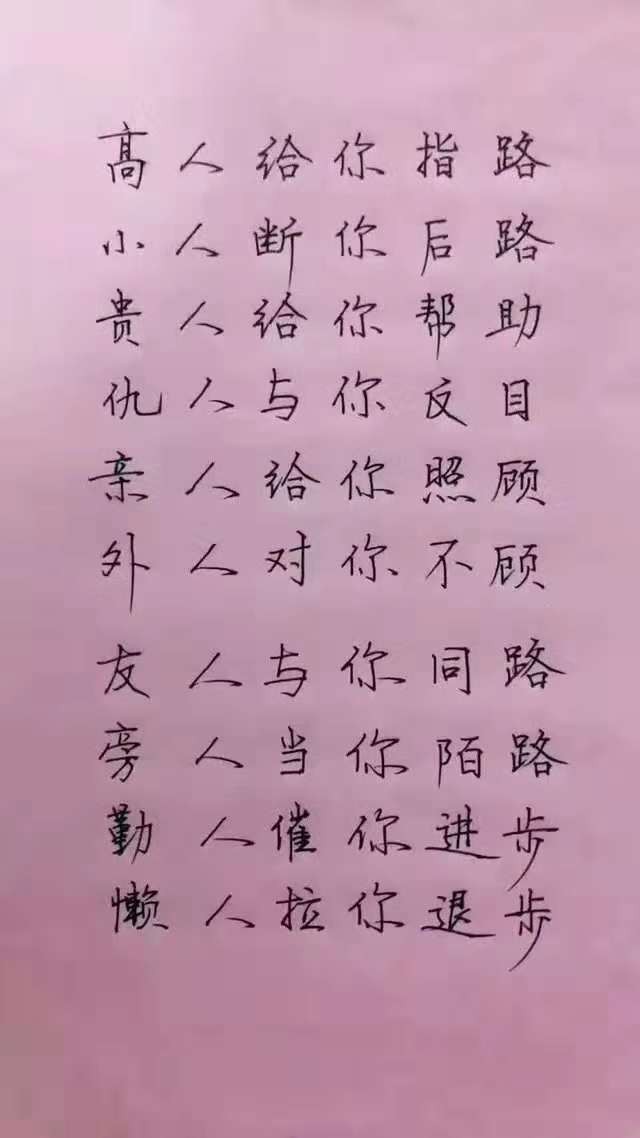 高人给你指路
小人断你后路
贵人给你帮助
仇人与你反目
亲人给你照顾
外人对你不顾
友人与你同路
旁人当你陌路
勤人催你进步
懒人拉你退步